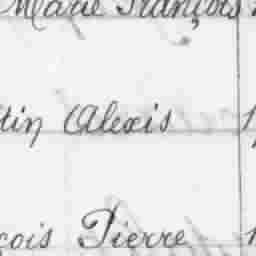 Marie François
tin Alexis
çois Pierre